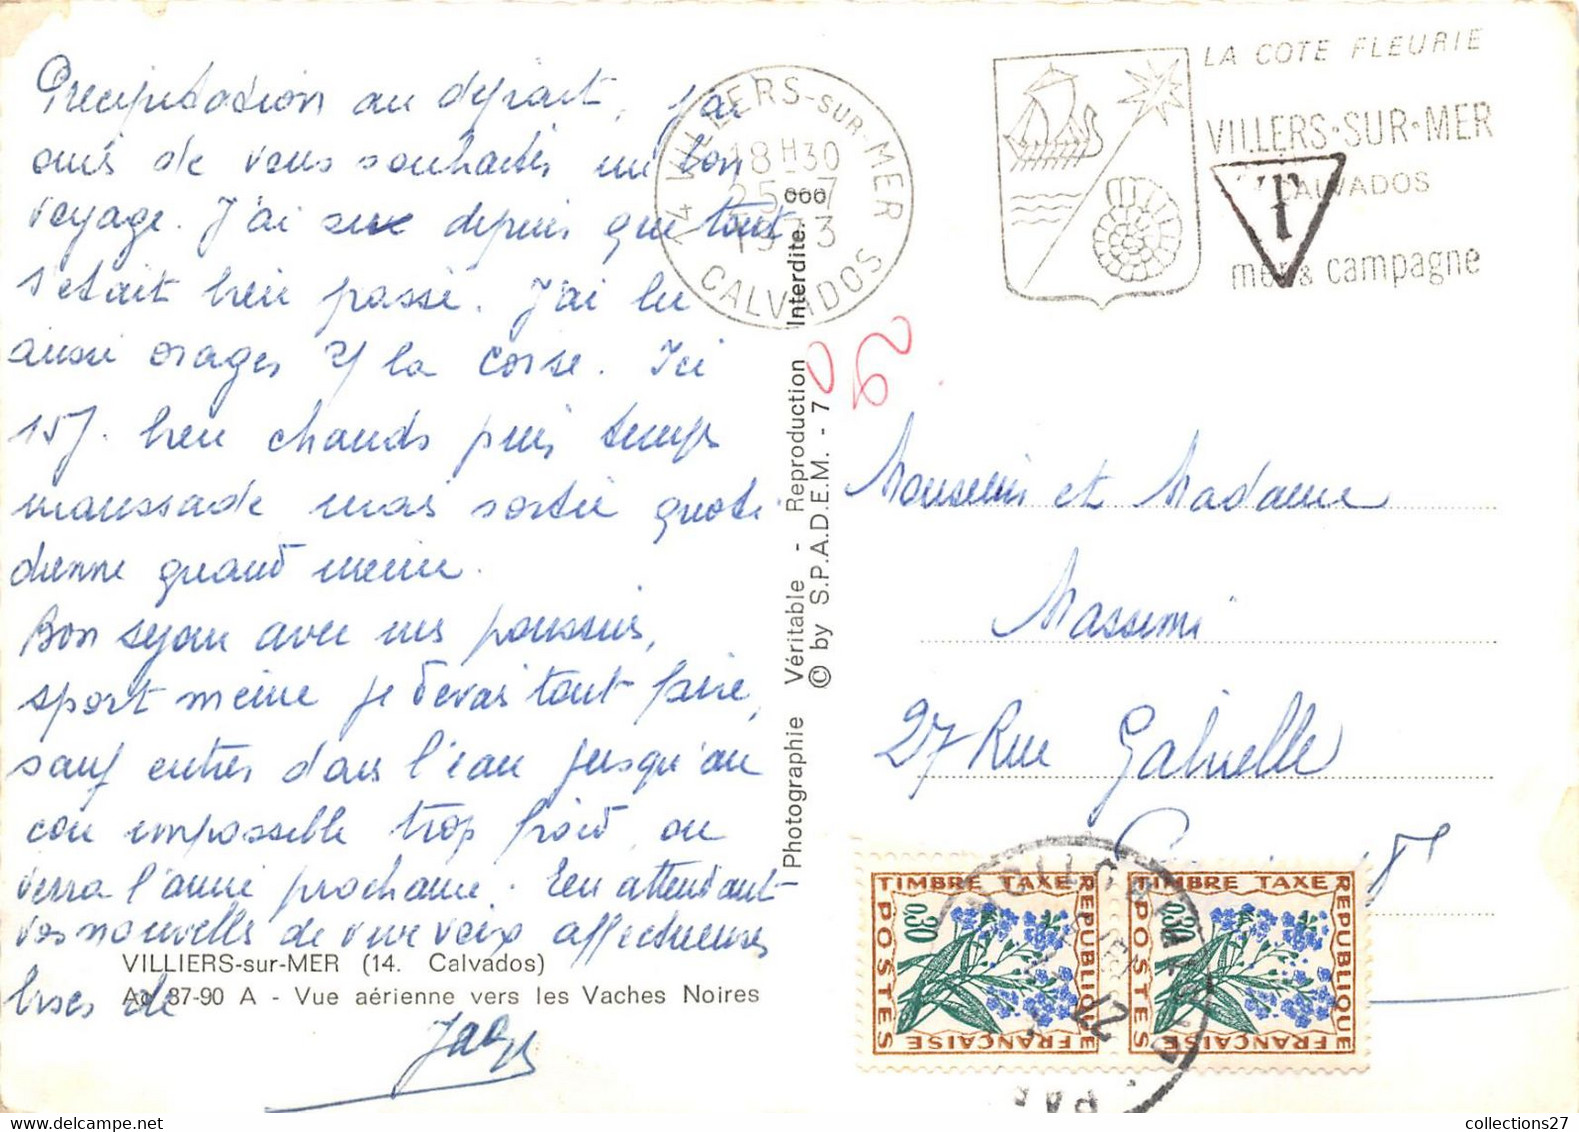 Précipitation au départ, j'ai
omis de vous souhaiter un bon
voyage. J'ai su depuis que tout
s'était bien passé. J'ai lu
aussi orages s/ la corse. Ici
15 J. bien chauds puis temps
maussade mais sortie quoti
dienne quand même.
Bon séjour avec vos poussins,
sport même je devais tout faire,
sauf entrer dans l'eau jusqu'au
cou impossible trop froid, on
verra l'année prochaine. En attendant
vos nouvelles de vive voix affectueuses
bises de
Jacq
VILLIERS-sur-MER (14. Calvados)
Ad 87-90 A - Vue aérienne vers les Vaches Noires
Photographie Véritable - Reproduction Interdite. 666
© by S.P.A.D.E.M. - 7
14 VILLERS-SUR-MER
18 H 30
25-7
1973
CALVADOS
LA COTE FLEURIE
VILLERS-SUR-MER
CALVADOS
mer & campagne
T
Monsieur et Madame
Massimi
27 Rue Gabrielle
TIMBRE TAXE
REPUBLIQUE FRANÇAISE
POSTES
0,30
TIMBRE TAXE
REPUBLIQUE FRANÇAISE
POSTES
0,30
27
collections27